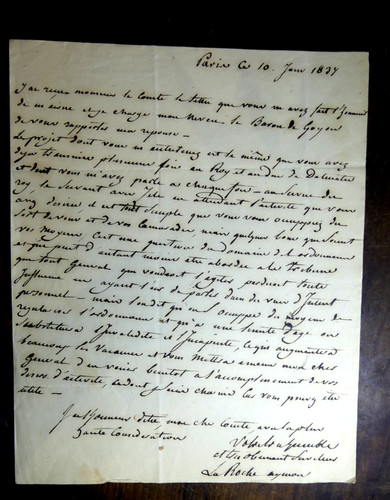 Paris Ce 10. Janr 1837
J'ai reçu monsieur le Comte la lettre que vous m'avez fait l'honneur
de m'écrire et je charge mon Neveu le Baron de Goyon
de vous rapporter ma réponse -
Le projet dont vous m'entretenez est le même que vous avez
déjà plusieurs fois au Roy et
et dont vous m'avez parlé à chaque fois - au de
roy le servant avec Zele en attendant l'activité que vous
avez desirée il est tout simple que vous vous occupiez du
sort de vous et de vos Camarades, mais quelque bons que soient
vos moyens C'est une question du domaine de l'ordonnance
et qui peut d'autant moins être abordée à la tribune
que tout General qui voudroit s'agiter perdroit toute
Influence en ayant l'air de parler dans l'Interet
personnel - mais on s'occupe du moyen de
l'ordonnance et qu'à une limite d'age on
substituera l'Invalidité et l'Incapacité, ce qui augmentera
beaucoup les Vacances et Vous mettra à meme mon cher
General d'en venir bientot à l'accomplissement de vos
désirs d'activité, ce dont je serai charmé si je vous pouvez être
utile -
J'ai l'honneur d'être mon cher Comte avec la plus
haute Considération
Votre très humble
et très obéissant Serviteur
La Roche aymon